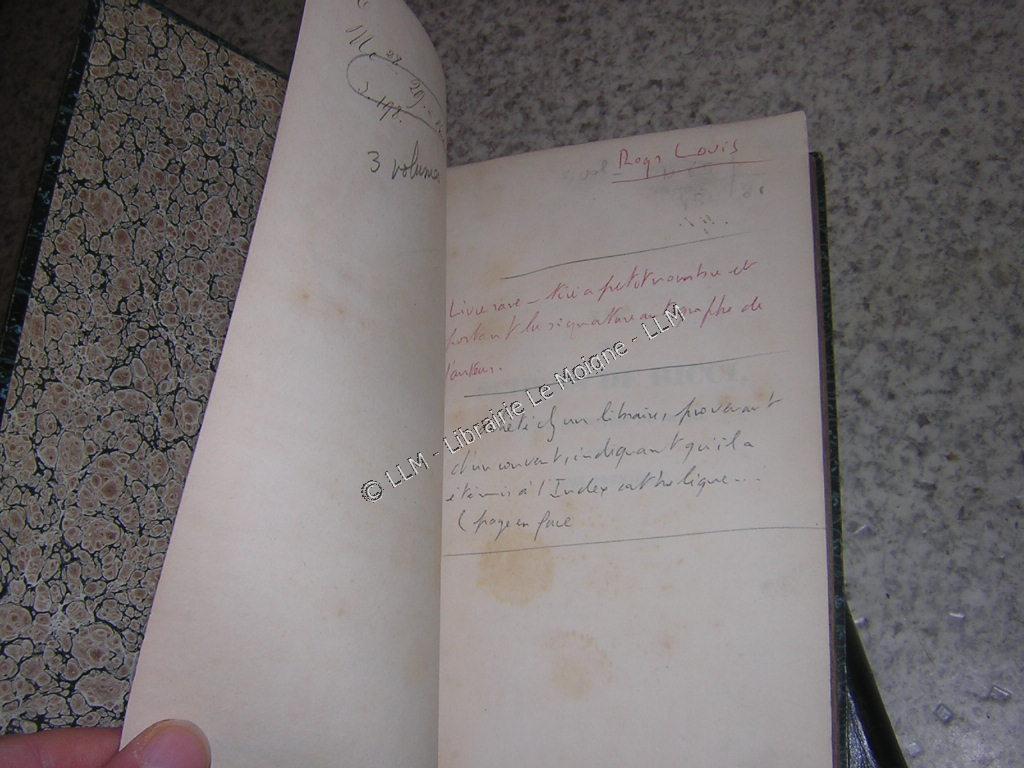 3 volumes
Rogr Louis
Livre rare - tiré a petit nombre et
portant la signature autographe de
l'auteur.
acheté chez un libraire, provenant
d'un couvent, indiquant qu'il a
été mis à l'Index catholique...
( page en face
© LLM - Librairie Le Moigne - LLM